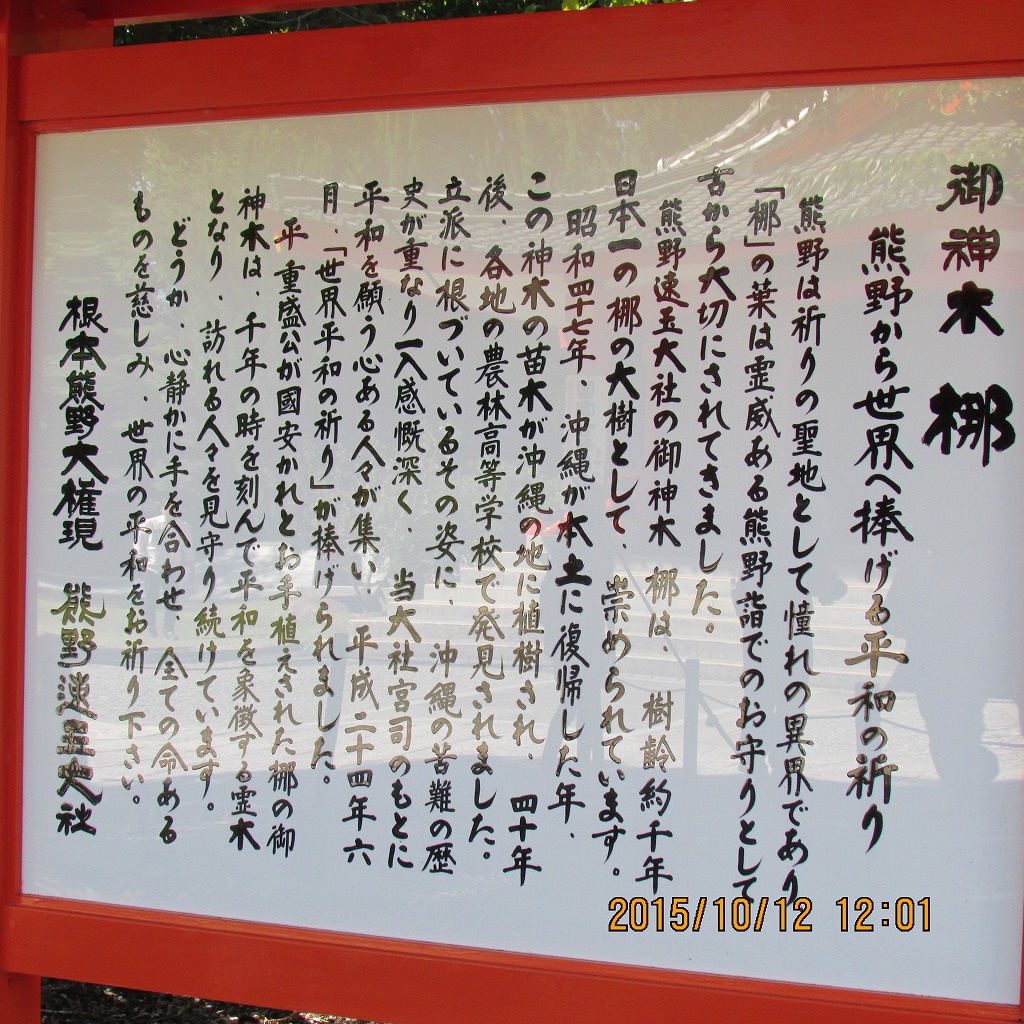 御神木　梛
熊野から世界へ捧げる平和の祈り
熊野は祈りの聖地として憧れの異界であり
「梛」の葉は霊威ある熊野詣でのお守りとして
古から大切にされてきました。
熊野速玉大社の御神木　梛は、樹齢約千年
日本一の梛の大樹として、崇められています。
昭和四十七年、沖縄が本土に復帰した年、
この神木の苗木が沖縄の地に植樹され、四十年
後、各地の農林高等学校で発見されました。
立派に根づいているその姿に、沖縄の苦難の歴
史が重なり一入感慨深く、当大社宮司のもとに
平和を願う心ある人々が集い、平成二十四年六
月、「世界平和の祈り」が捧げられました。
平　重盛公が國安かれとお手植えされた梛の御
神木は、千年の時を刻んで平和を象徴する霊木
となり、訪れる人々を見守り続けています。
どうか、心静かに手を合わせ、全ての命ある
ものを慈しみ、世界の平和をお祈り下さい。
根本熊野大権現　熊野速玉大社
2015/10/12 12:01